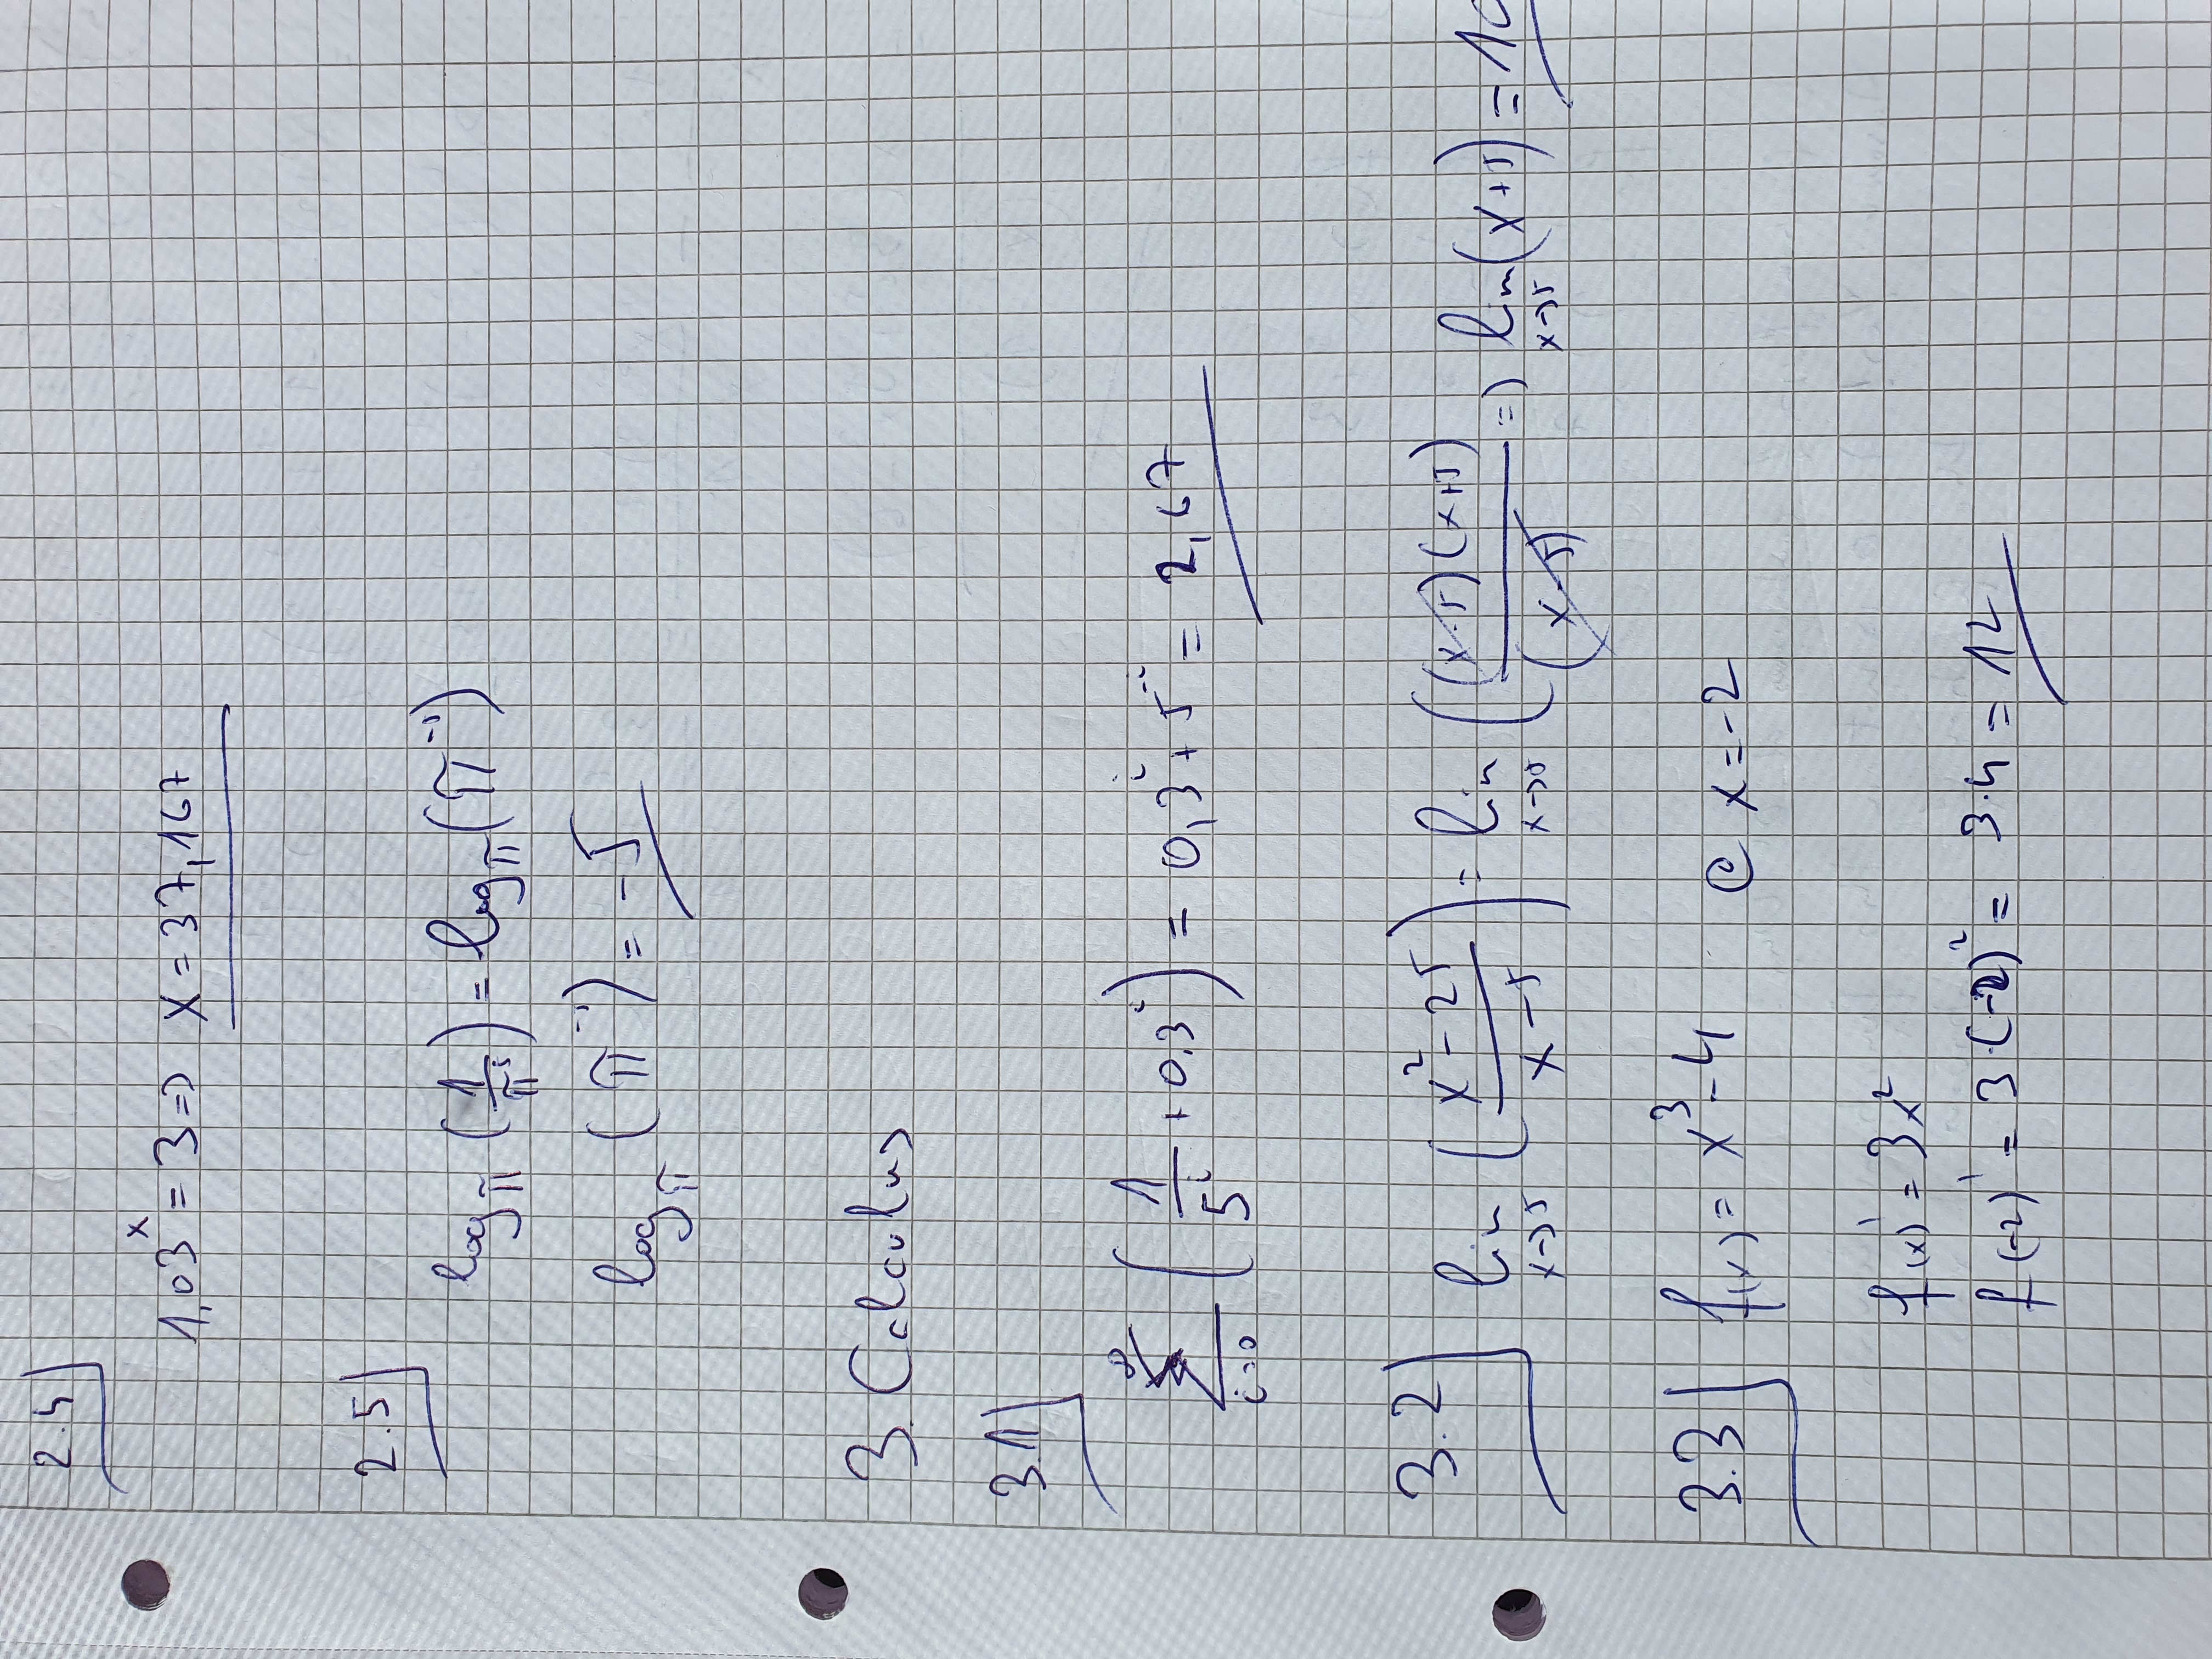 2.4
1,03^x = 3 => x = 37,167
2.5
log_π (1/π^5) = log_π (π^-5)
log_π (π^-5) = -5
3. Calculus
3.1
∑_{i=0}^∞ (1/5^i + 0,3^i) = 0,3^i + 5^-i = 2,67
3.2 lim_{x→5} ((x²-25)/(x-5)) = lim_{x→5} ((x-5)(x+5)/(x-5)) => lim_{x→5} (x+5) = 10
3.3 f(x) = x³-4 @ x = -2
f(x)' = 3x²
f(-2)' = 3·(-2)² = 3·4 = 12